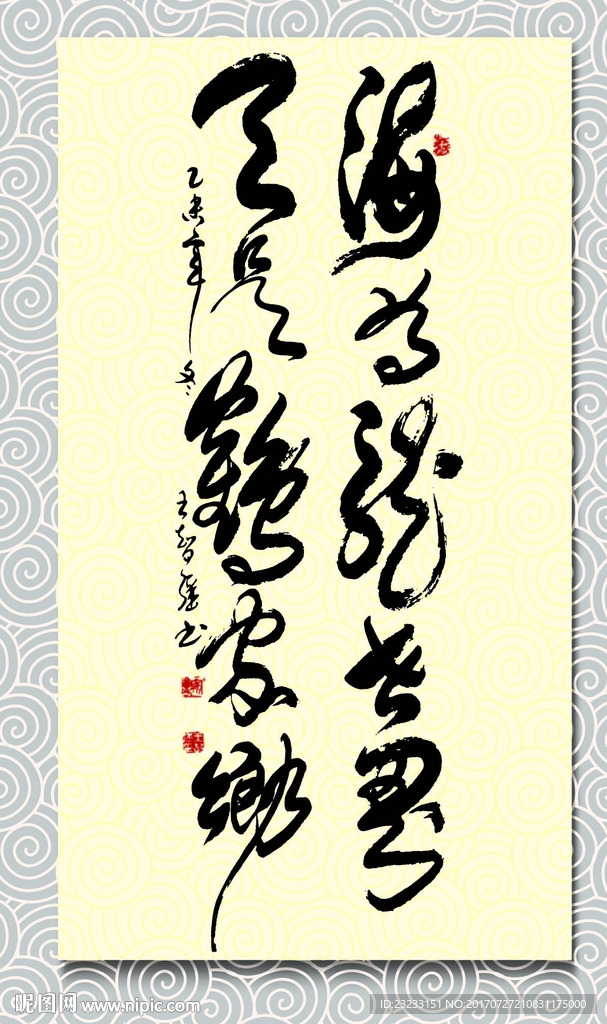 海为龙世界
天是鹤家乡
乙未年冬
王智磊书
昵图网 www.nipic.com
ID:23233151 NO:20170727210831175000